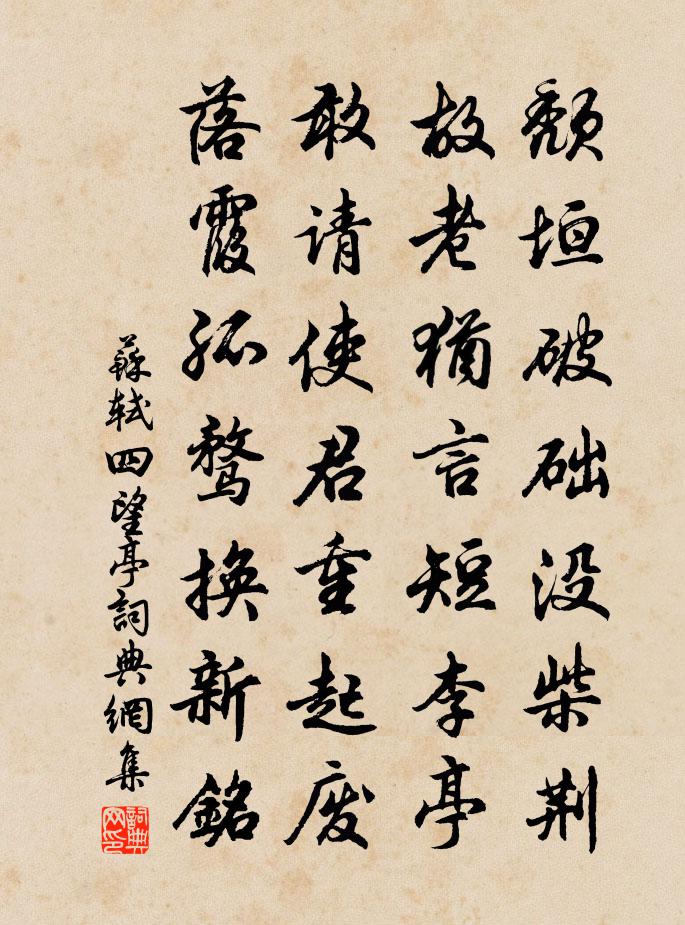 颓垣破础没柴荆
故老猶言短李亭
敢请使君重起废
落霞孤鹜换新銘
蘇轼四望亭詞典網集
詞典网印